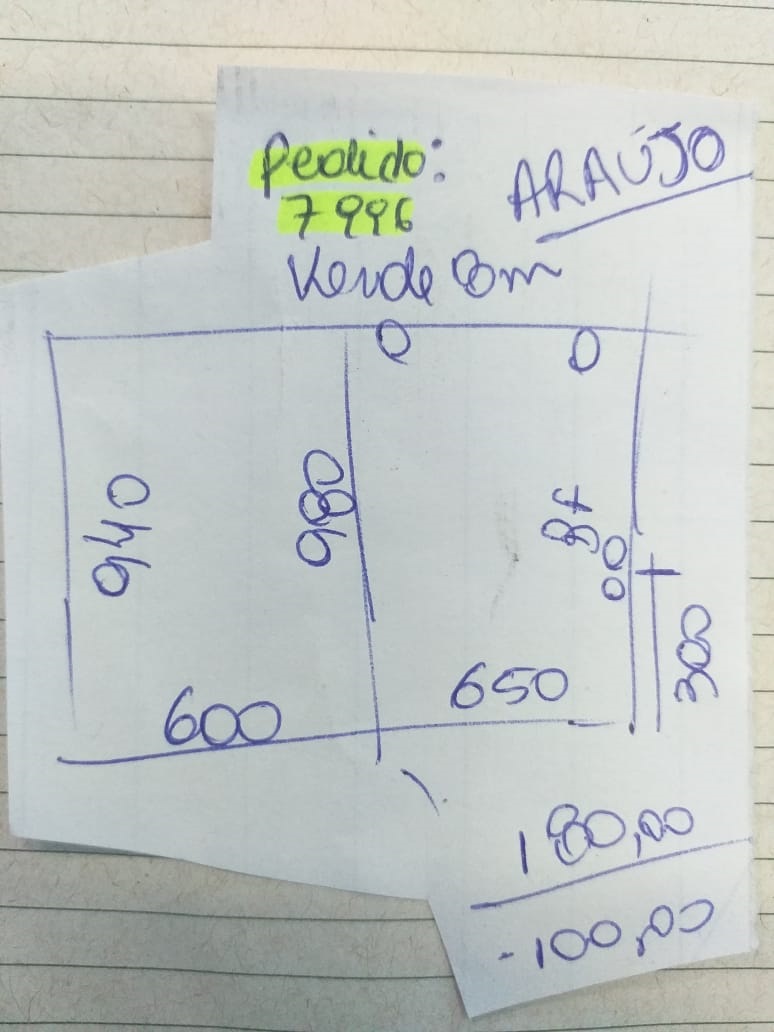 Pedido:
7996
ARAÚJO
Verde 8m
940
980
8f
600
650
300
180,00
-100,00